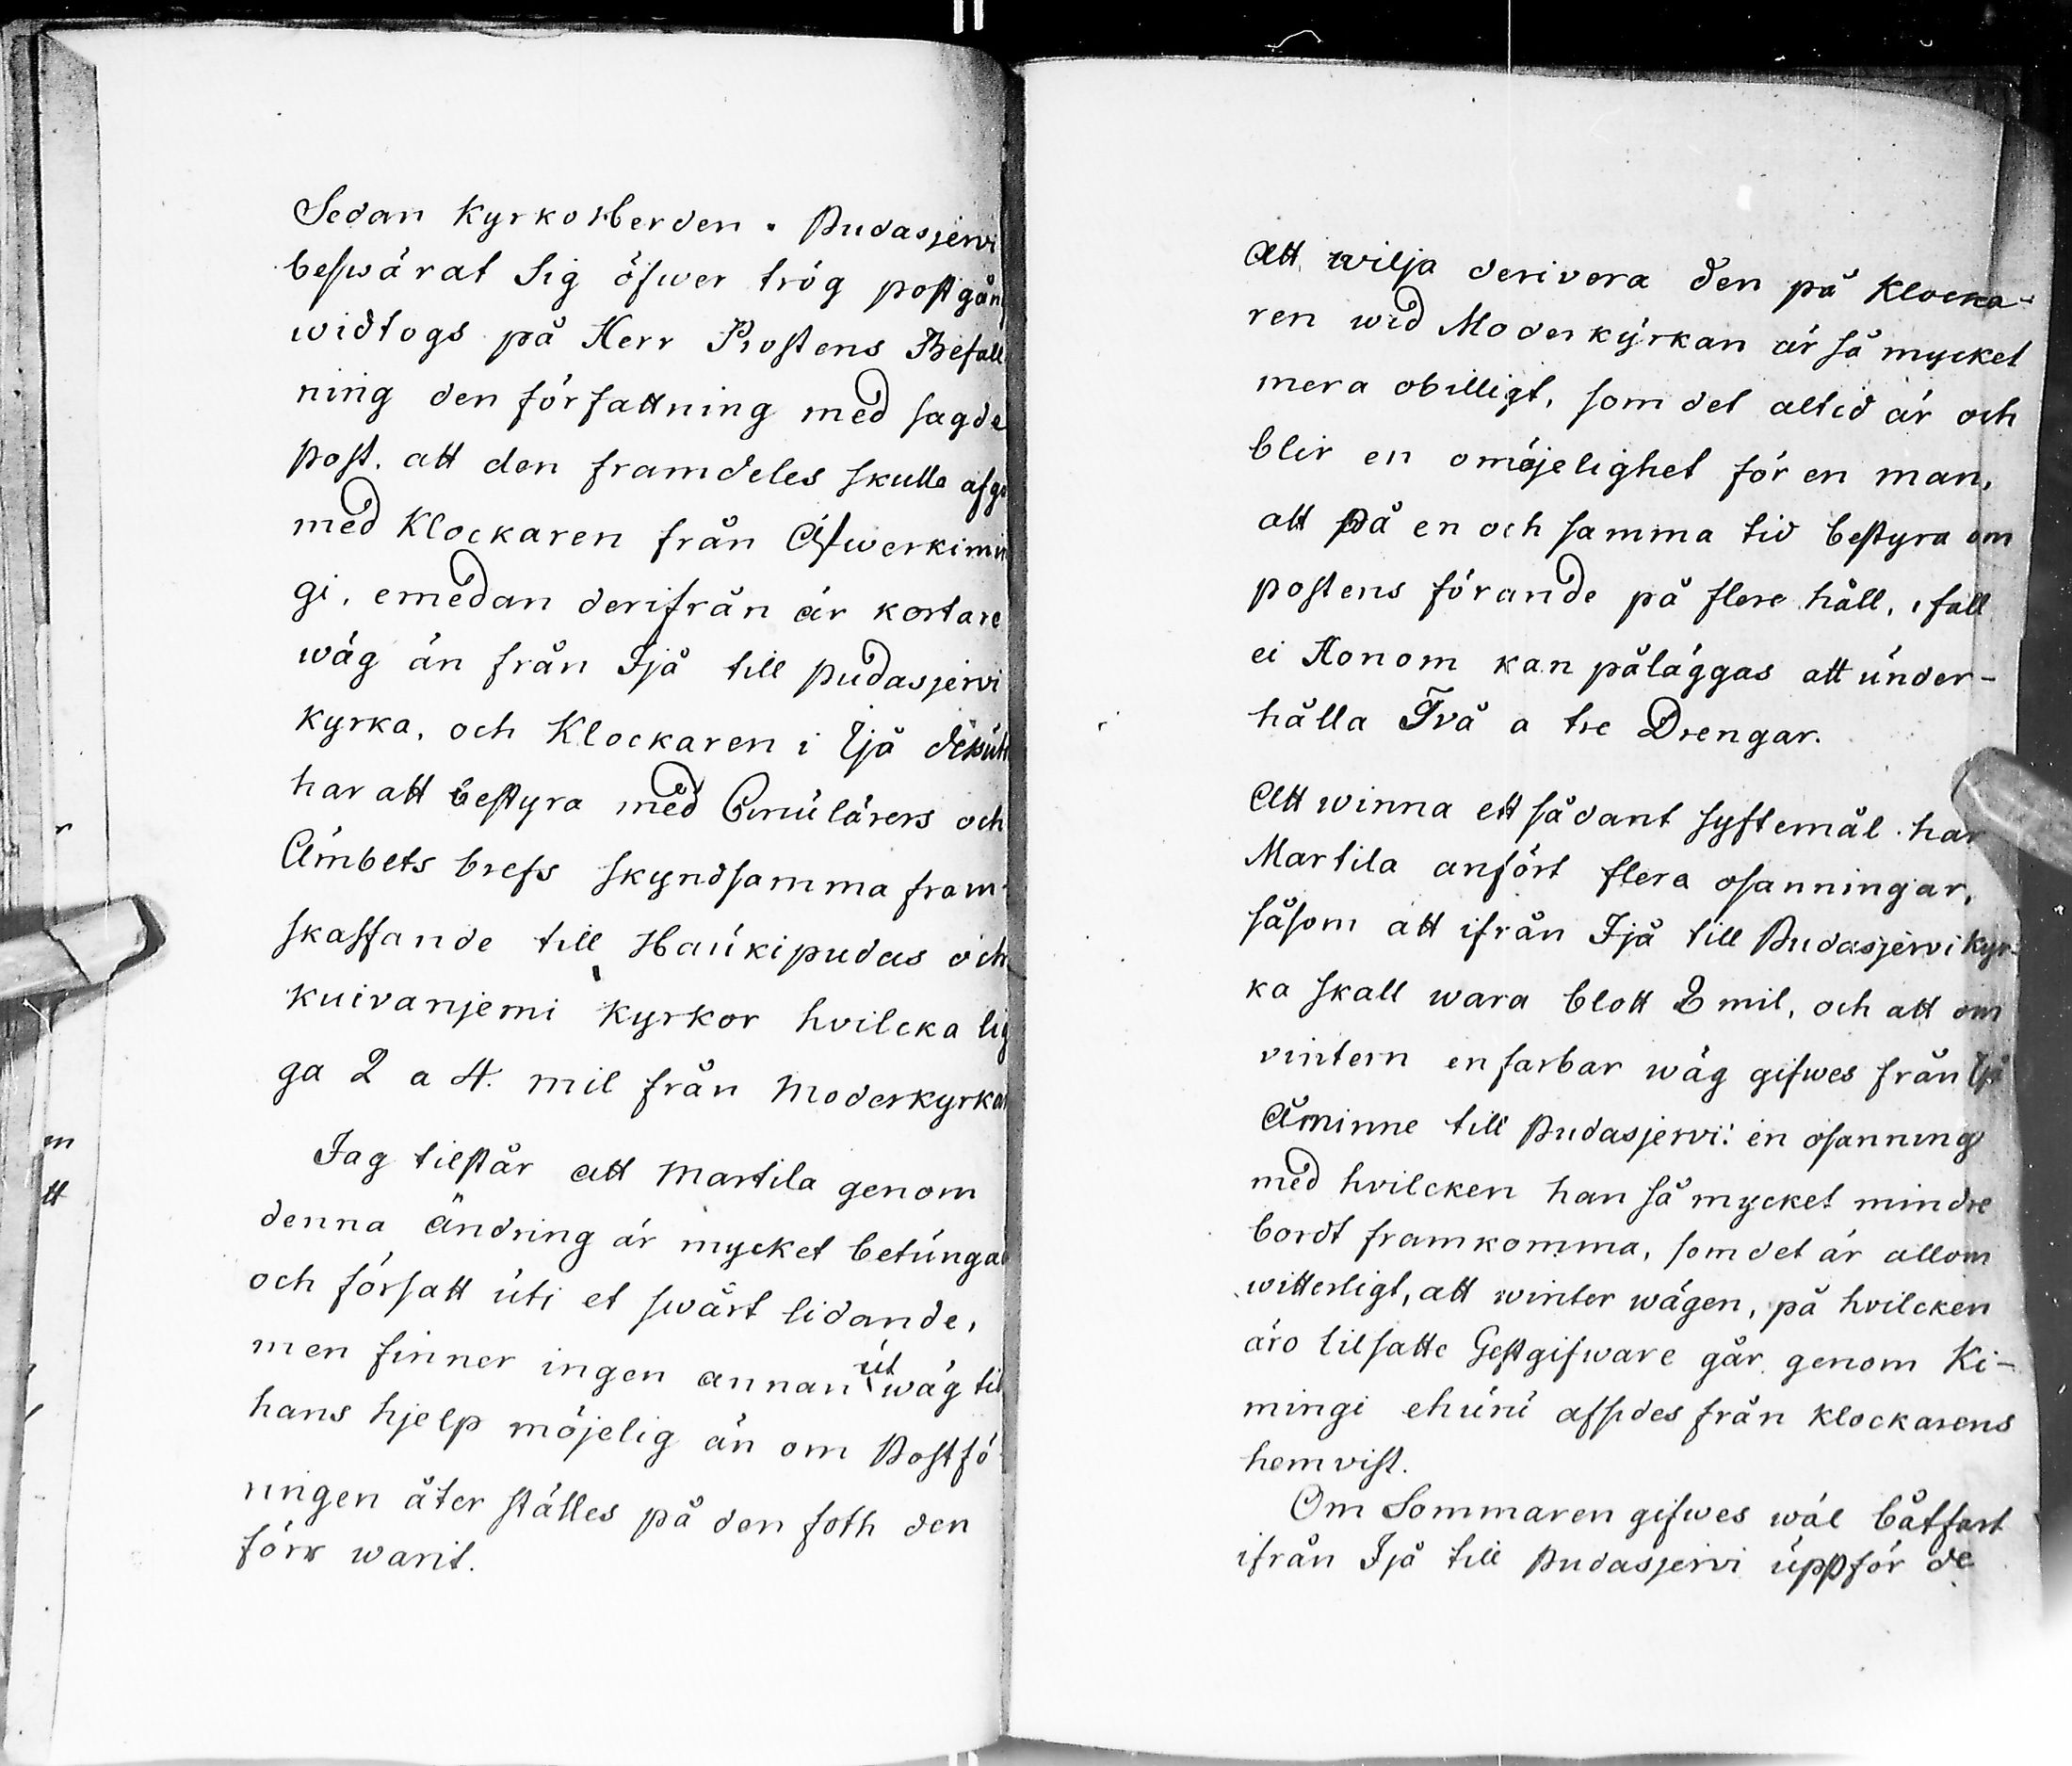 Sedan KyrkoHerden i Pudasjervi
beswärat Sig öfwer trög postgån
widtogs på Herr Prostens Befall
ning den författning med sagde
post, att den framdeles skulle afgå
med Klockaren från Öfwerkimin
gi, emedan derifrån är kortare
wäg än från Ijå till pudasjervi
Kyrka, och Klockaren i Ijå
har att bestyra med Cirrülärers och
Ämbets brefs skyndsamma fram-
skaffande till Haükipudas och
Kuivanjemi Kyrkor hvilcka lig
ga 2 a 4. mil från Moderkyrkan
Jag tilstår att Martila genom
denna ändring är mycket betüngad
och försatt üti et swårt lidande,
men finner ingen annan üt wäg til
hans hjelp möjelig än om Postfö-
ringen åter ställes på den foth den
förr warit.
Att wilja derivera den på Klocka-
ren wid Moderkÿrkan är så mycket
mera obilligt, som det altid är och
blir en omöjelighet för en man,
att på en och samma tid bestyra om
postens förande på flere håll, i fall
ei Honom kan påläggas att ünder-
hålla Två a tre Drengar.
Att winna ett sådant syftemål har
Martila anfört flera osanningar,
såsom att ifrån Ijå till Pudasjervi Kyr-
ka skall wara blott 8 mil, och att om
vintern en farbar wäg gifwes från Ijå
Åminne till Pudasjervi: en osanning
med hvilcken han så mycket mindre
bordt framkomma, som det är allom
witterligt, att winter wägen, på hvilcken
äro tilsatte Gestgifware går genom Ki-
mingi ehürü afsides från Klockarens
hemvist.
Om Sommaren gifwes wäl båtfart
ifrån Ijå till Pudasjervi üppför de